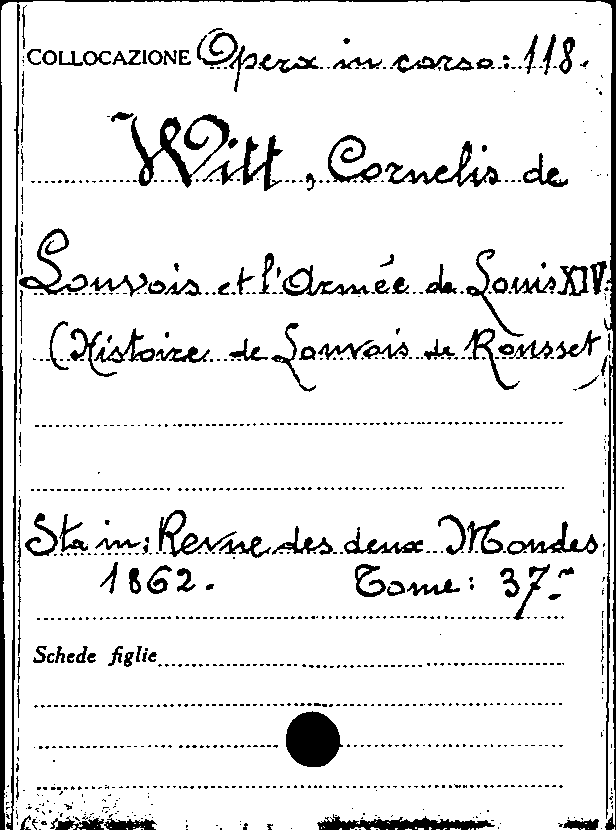 COLLOCAZIONE Opera in corso: 118.
Witt, Cornelis de
Louvois et l'Armée de Louis XIV.
(Histoire de Louvois de Rousset)
Sta in: Revue des deux Mondes
1862. Tome: 37.º
Schede figlie